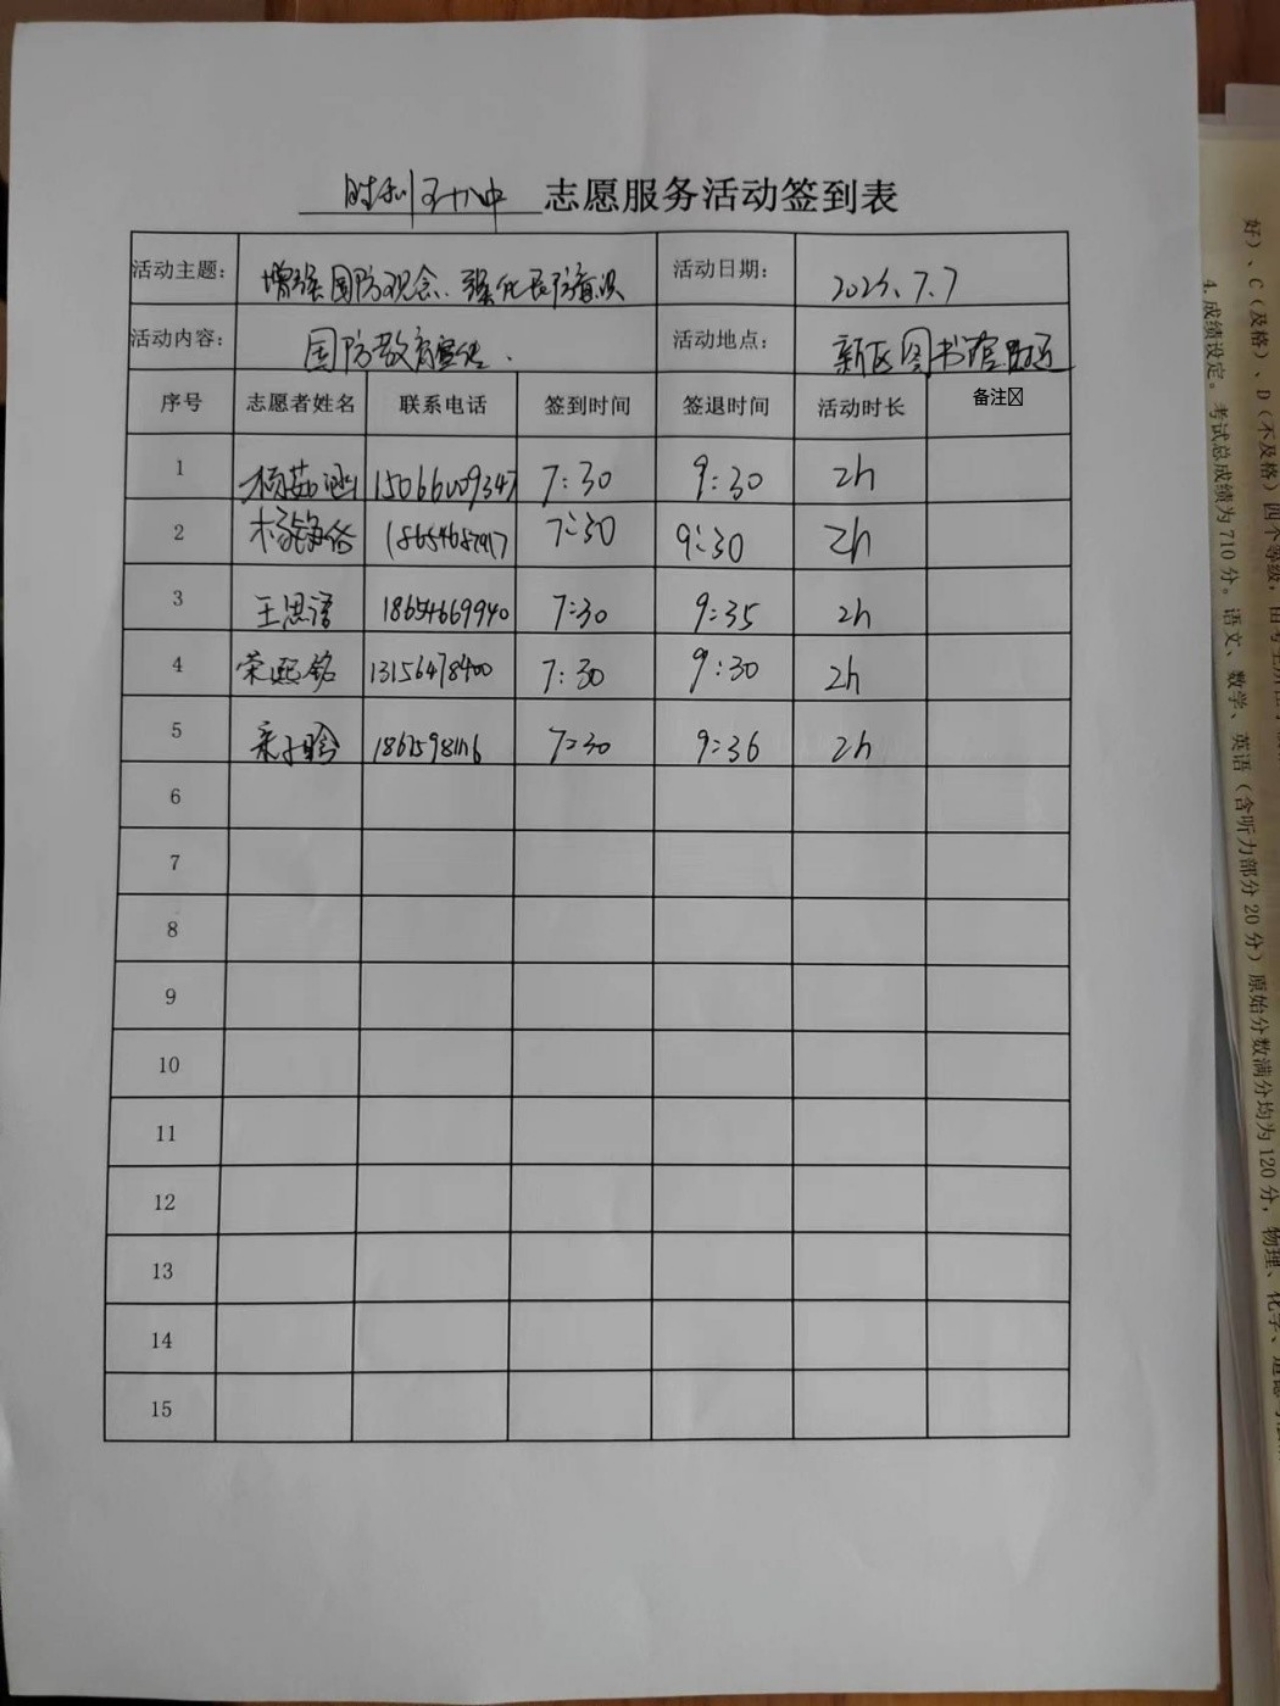 胜利五十八中 志愿服务活动签到表
活动主题: 增强国防观念、强化民防意识 活动日期: 2025.7.7
活动内容: 国防教育宣传. 活动地点: 新区图书馆
序号 志愿者姓名 联系电话 签到时间 签退时间 活动时长 备注
1 杨茹涵 15066009347 7:30 9:30 2h
2 7:30 9:30 2h
3 王思诺 18654669940 7:30 9:35 2h
4 荣熙铭 13156478400 7:30 9:30 2h
5 7:30 9:36 2h
6
7
8
9
10
11
12
13
14
15
好)、C(及格)、D(不及格)四个等级,
4.成绩设定。考试总成绩为710分。语文、数学、英语(含听力部分20分)原始分数满分均为120分,物理、化学、道德